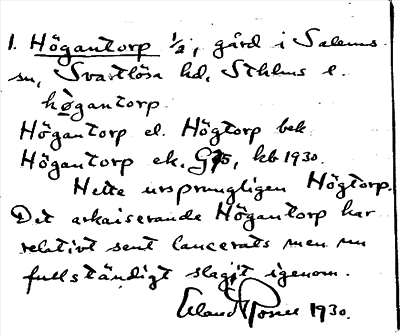 1. Högantorp 1/2, gård i Salems
sn, Svartlösa hd, Sthlms l.
högantorp
Högantorp el. Högtorp bek.
Högantorp ek. G75, kb 1930.
Hette ursprungligen Högtorp.
Det arkaiserande Högantorp har
relativt sent lancerats men nu
fullständigt slagit igenom.
Erland Rosell 1930.